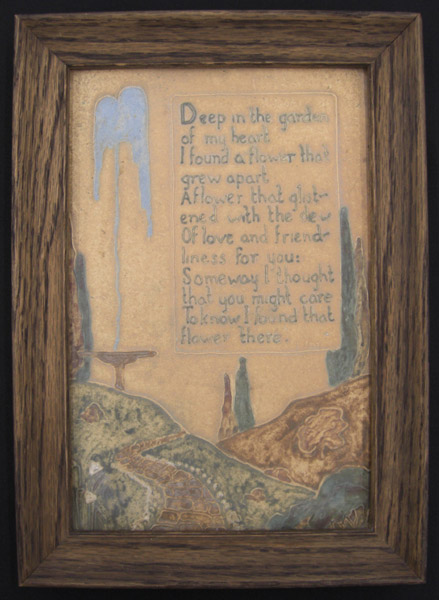 Deep in the garden
of my heart
I found a flower that
grew apart
A flower that glist-
ened with the dew
Of love and friend-
liness for you:
Someway I thought
that you might care
To know I found that
flower there.